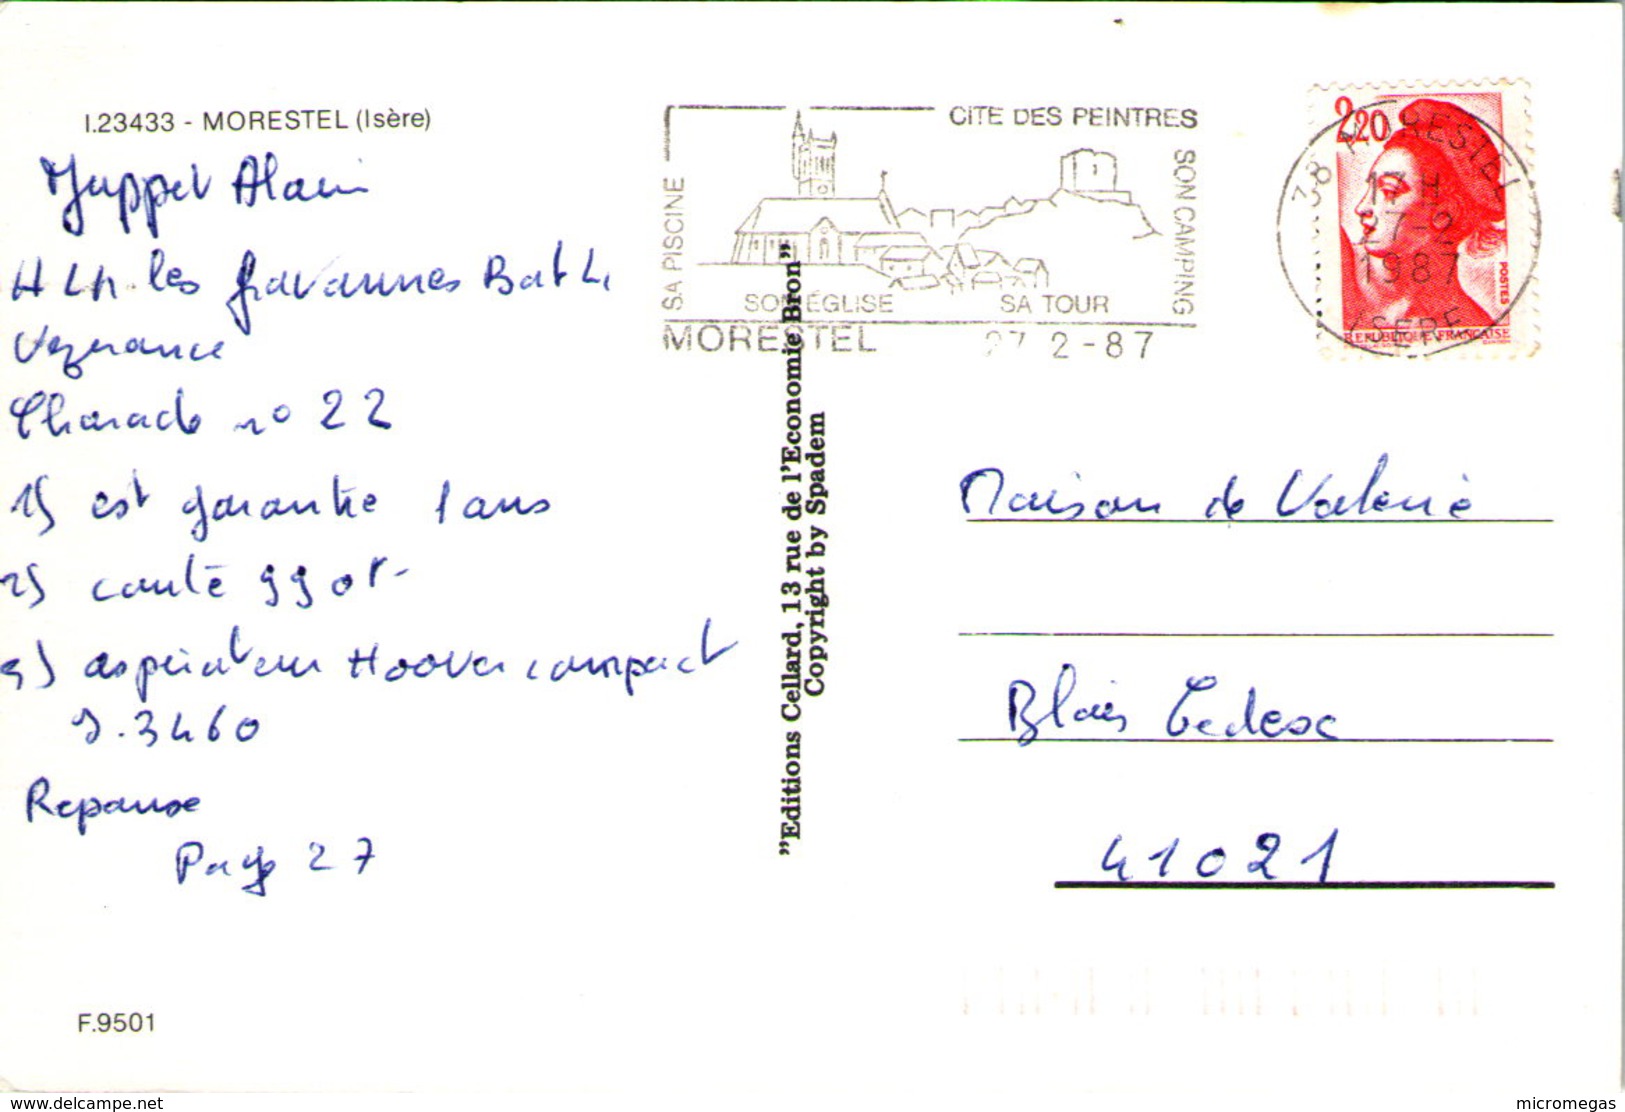 I.23433 - MORESTEL (Isère)
Alain
HLM les Bat 4
Vezerance
Charade no 22
1) est garantie 1 ans
2) coute 990F-
3) aspirateur Hoover compact
S.3460
Reponse
Page 27
F.9501
CITE DES PEINTRES
SA PISCINE
SON CAMPING
SON ÉGLISE SA TOUR
MORESTEL 27 2-87
2,20
38 MORESTEL
17 H
27-2
1987
ISERE
POSTES
REPUBLIQUE FRANÇAISE
"Editions Cellard, 13 rue de l'Economie Bron"
Copyright by Spadem
Maison de Valerie
Blois Cedex
41021
www.delcampe.net
micromegas